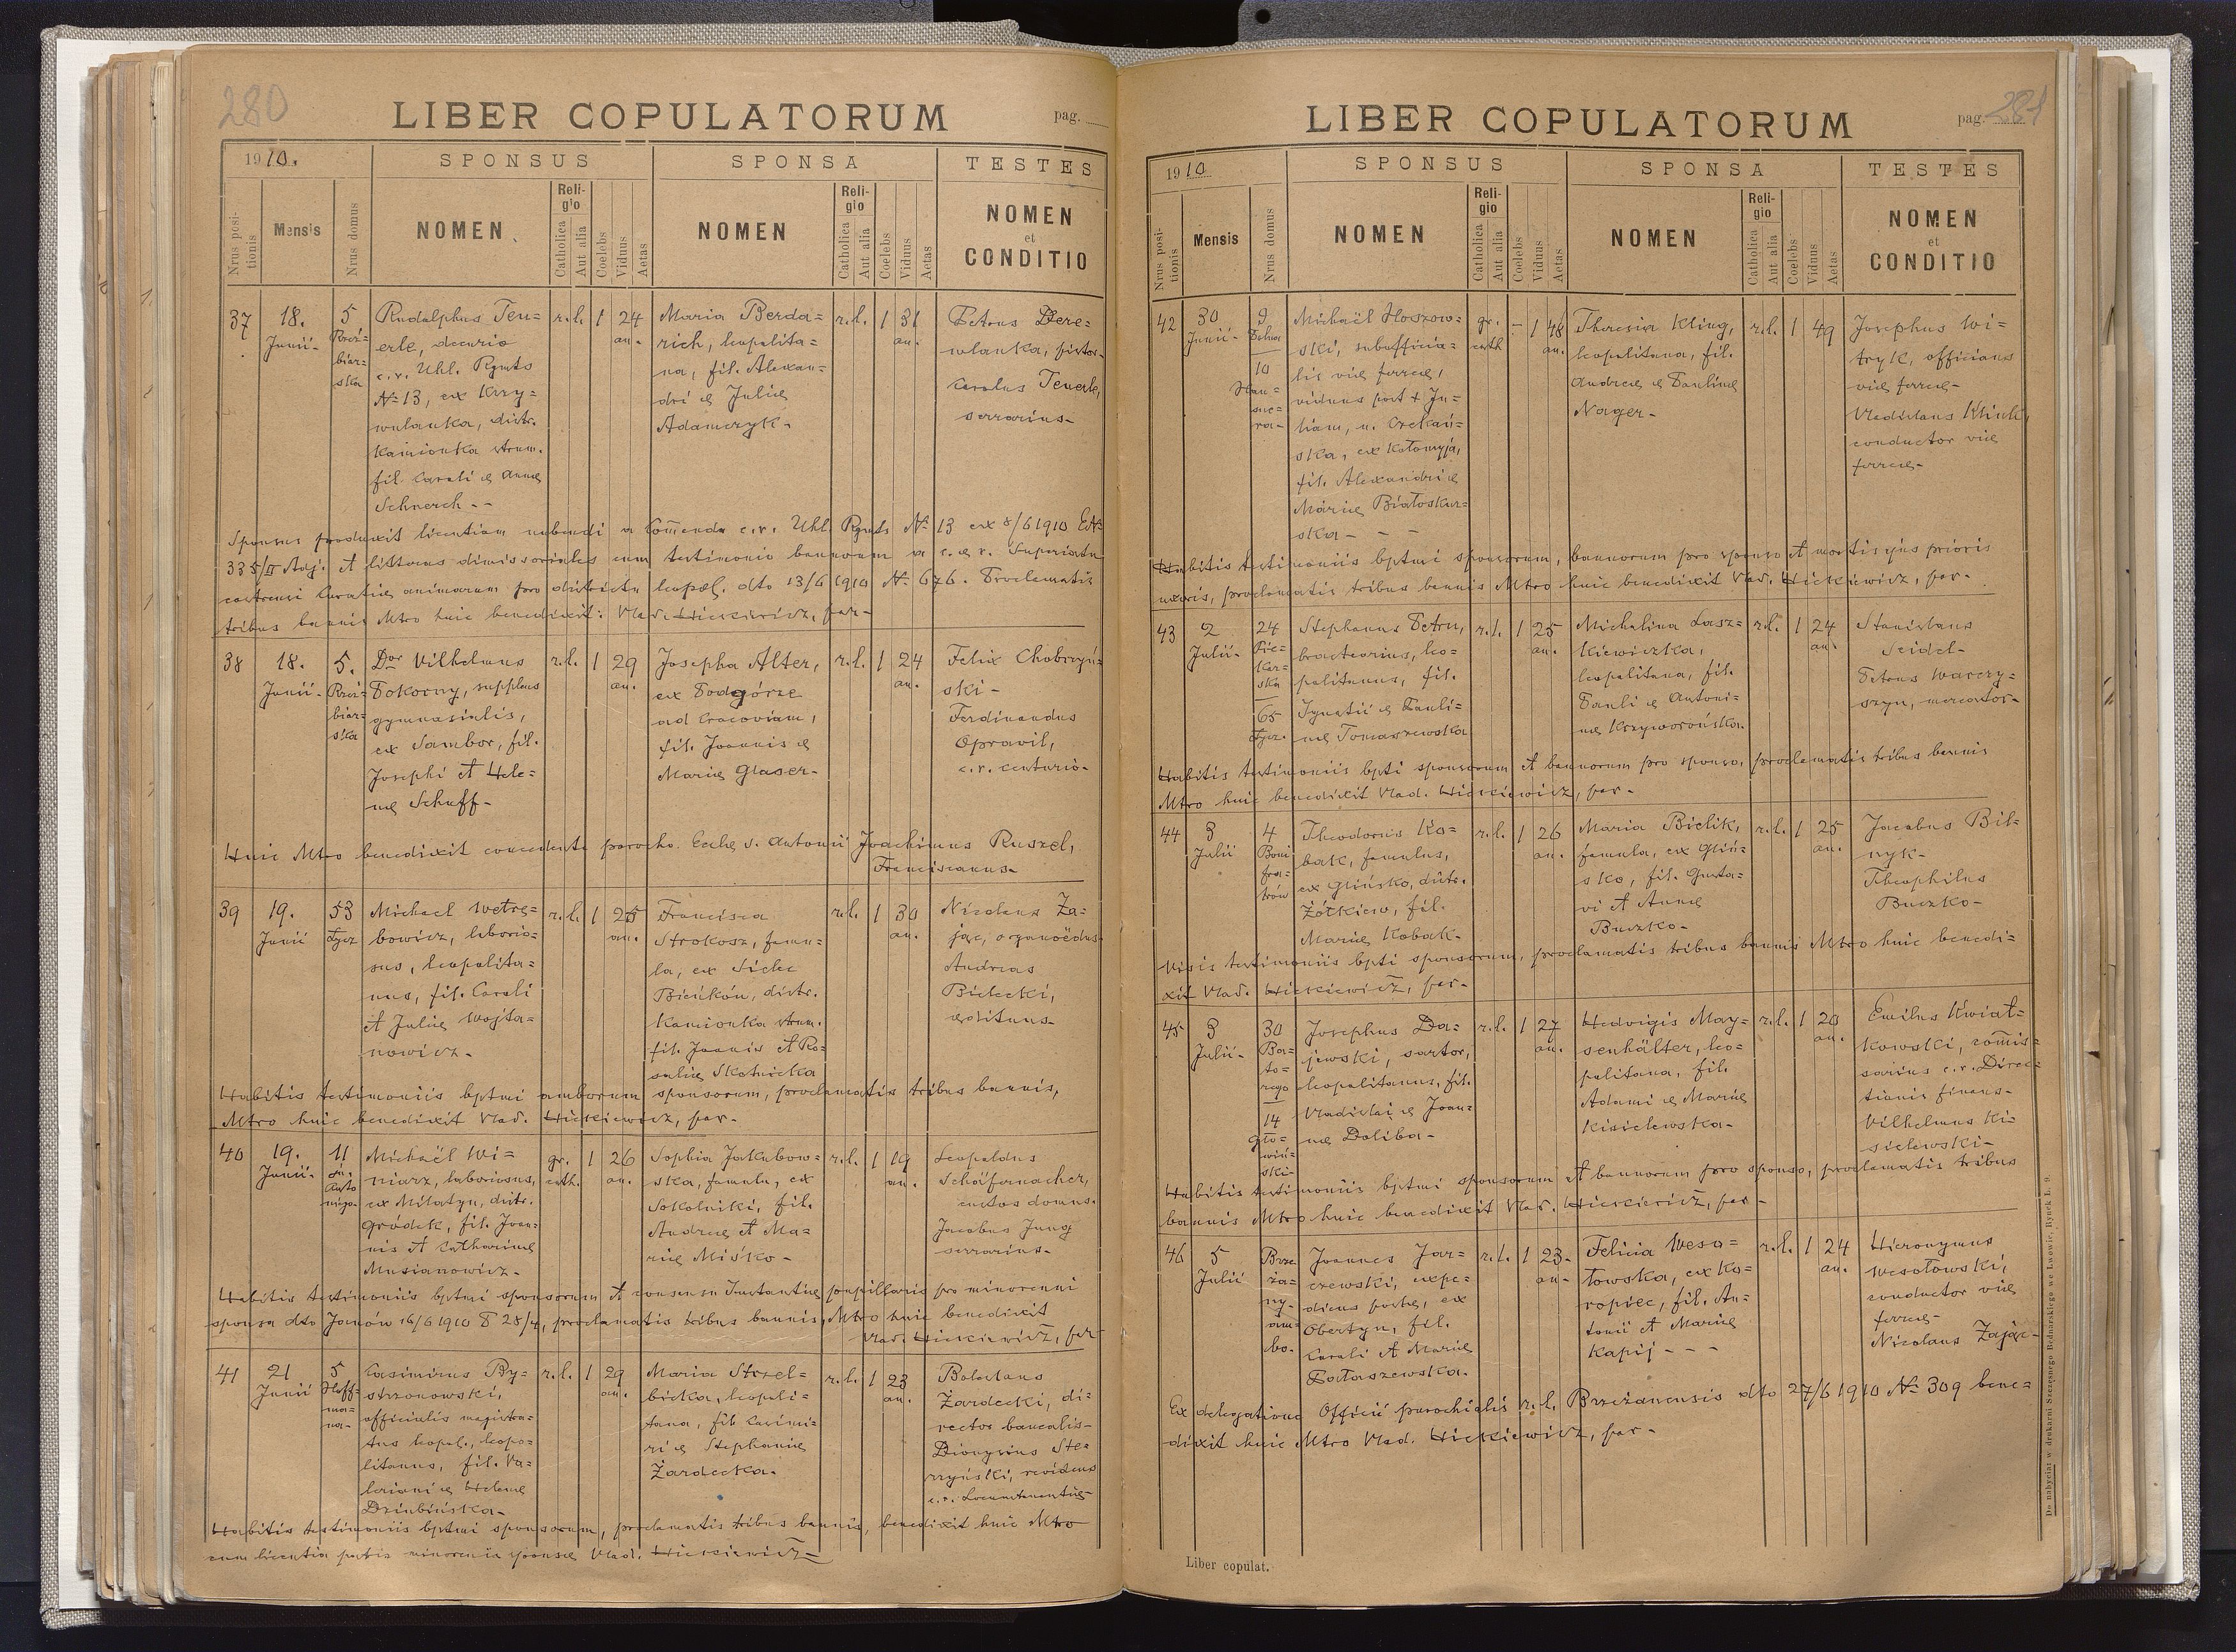 280
LIBER COPULATORUM
pag.
1910.
SPONSUS
SPONSA
TESTES
Nrus positionis
Mensis
Nrus domus
NOMEN
Religio
Catholica
Aut alia
Coelebs
Viduus
Aetas
NOMEN
Religio
Catholica
Aut alia
Coelebs
Viduus
Aetas
NOMEN
et
CONDITIO
37
18.
Junii-
5
Rudolphus Teu=
erle, decurio
c.r. Uhl. Rgmts
№ 13, ex Krzy=
wulanka, distr.
Kamionka strum.
fil. Caroli & Annæ
Schnerch --
r.l.
1
24
an.
Maria Berda=
rich, leopolita=
na, fil. Alexan=
dri & Juliæ
Adamczyk-
r.l.
1
31
an.
Petrus Dere=
wlanka, pistor-
Carolus Teuerle,
serrarius-
Sponsus produxit licentiam nubendi a Commenda c.r. Uhl. Rgmts № 13 ex 8/6 1910 E№
335/II Adj. et litteras dimissoriales cum testimonio bannorum a c. & r. Superiatu
castrensi Curatiæ animarum pro districtu leopol. dto 13/6 1910 № 676. Proclamatis
tribus bannis Mtro huic benedixit: Vlad. Hickiewicz, par-
38
18.
Junii-
5.
Dor Vilhelmus
Pokorny, supplens
gymnasialis,
ex Sambor, fil.
Josephi et Hele=
næ Schuff-
r.l.
1
29
an.
Josepha Alter,
ex Podgórze
ad Cracoviam,
fil. Joannis &
Mariæ Glaser-
r.l.
1
24
an.
Felix Chobrzyń=
ski-
Ferdinandus
Opravil,
c.r. centurio-
Huic Mtro benedixit concedente parocho Eccle s. Antonii Joachimus Ruszel,
Franciscanus-
39
19.
Junii
53
Łycz
Michael Wetrę=
bowicz, laborio=
sus, leopolita=
nus, fil. Caroli
et Juliæ Wojta=
nowicz-
r.l.
1
25
an.
Francisca
Strokosz, famu=
la, ex Sielec
Bieńków, distr.
Kamionka strum.
fil. Joannis et Ro=
saliæ Skotnicka
r.l.
1
30
an.
Nicolaus Za=
jąc, organoëdus-
Andreas
Bielecki,
ædituus-
Habitis testimoniis bptmi amborum sponsorum, proclamatis tribus bannis,
Mtro huic benedixit Vlad. Hickiewicz, par-
40
19.
Junii-
11
Michaël Wi=
niarz, laboriosus,
ex Milatyn, distr.
Gródek, fil. Joan=
nis et Catharinæ
Musianowicz-
gr.
cath.
1
26
an.
Sophia Jakubow=
ska, famula, ex
Sokolniki, fil.
Andreæ et Ma=
riæ Miśko-
r.l.
1
19
an.
Leopoldus
Schäfernacher,
custos domus-
Jacobus Jung
serrarius-
Habitis testimoniis bptmi sponsorum et consensu Instantiæ pupillaris pro minorenni
sponsa dto Janów 16/6 1910 P 28/4, proclamatis tribus bannis, Mtro huic benedixit
Vlad. Hickiewicz, par-
41
21
Junii
5
Hoff=
ma=
na-
Casimirus By=
strzonowski,
officialis magistra=
tus leopol., leopo=
litanus, fil. Va=
leriani & Helenæ
Dziubińska-
r.l.
1
29
an.
Maria Strzel=
bicka, leopoli=
tana, fil. Casimi=
ri & Stephaniæ
Żardecka.
r.l.
1
23
an.
Boleslaus
Żardecki, di=
rector bancalis-
Dionysius Ste=
czyński, revidens
c.r. Locumtenentiæ-
Habitis testimoniis bptmi sponsorum, proclamatis tribus bannis, benedixit huic Mtro
cum licentia patris minorenis sponsæ Vlad. Hickiewicz-
281
LIBER COPULATORUM
pag.
1910
SPONSUS
SPONSA
TESTES
Nrus positionis
Mensis
Nrus domus
NOMEN
Religio
Catholica
Aut alia
Coelebs
Viduus
Aetas
NOMEN
Religio
Catholica
Aut alia
Coelebs
Viduus
Aetas
NOMEN
et
CONDITIO
42
30
Junii-
9
10
Michaël Hoszow=
ski, subofficia=
lis viæ ferreæ,
viduus post + Ju=
liam, n. Czekań=
ska, ex Kołomyja,
fil. Alexandri &
Mariæ Białoskur=
ska- - -
gr.
cath
-
1
48
an.
Theresia Kling,
leopolitana, fil.
Andreæ & Paulinæ
Nager-
r.l.
1
49
Josephus Wi=
tryk, officians
viæ ferreæ-
Vladislaus Klink,
conductor viæ
ferreæ-
Habitis testimoniis bptmi sponsorum, bannorum pro sponso et mortis ejus prioris
uxoris, proclamatis tribus bannis Mtro huic benedixit Vlad. Hickiewicz, par-
43
2
Julii-
24
Pie=
kar=
ska
65
Łycz.
Stephanus Petru,
bractearius, leo=
politanus, fil.
Ignatii & Pauli=
næ Tomaszewska
r.l.
1
25
an.
Michalina Lasz=
kiewiczka,
leopolitana, fil.
Pauli & Antoni=
næ Krzyworońska.
r.l.
1
24
an.
Stanislaus
Seidel-
Petrus Warczy=
szyn, mercator-
Habitis testimoniis bpti sponsorum et bannorum pro sponso, proclamatis tribus bannis
Mtro huic benedixit Vlad. Hickiewicz, par-
44
3
Julii
4
Boni
fra=
trów
Theodorus Ko=
bak, famulus,
ex Glińsko, distr.
Żółkiew, fil.
Mariæ Kobak-
r.l.
1
26
an.
Maria Bielik,
famula, ex Gliń=
sko, fil. Gusta=
vi et Annæ
Buczko-
r.l.
1
25
an.
Jacobus Bil=
nyk-
Theophilus
Buczko-
Visis testimoniis bpti sponsorum, proclamatis tribus bannis Mtro huic benedi=
xit Vlad. Hickiewicz, par-
45
3
Julii-
30
Ba=
to=
rego
14
gło=
wiń=
ski-
Josephus Da=
jewski, sartor,
leopolitanus, fil.
Vladislai & Joan=
næ Doliba-
r.l.
1
27
an.
Hedvigis May=
senhälter, leo=
politana, fil.
Adami & Mariæ
Kisielewska-
r.l.
1
20
an.
Emilus Kwiat=
kowski, comis=
sarius c.r. Direc=
tionis finans-
Vilhelmus Ki=
sielewski-
Habitis testimoniis bptmi sponsorum et bannorum pro sponso, proclamatis tribus
bannis Mtro huic benedixit Vlad. Hickiewicz, par-
46
5
Julii
Brze
ża=
ny-
Joannes Jar=
czewski, expe=
diens postæ, ex
Obertyn, fil.
Caroli et Mariæ
Pataszewska.
r.l.
1
23-
an-
Felicia Weso=
łowska, ex Ko=
ropiec, fil. An=
tonii et Mariæ
Kapij- - -
r.l.
1
24
an.
Hieronymus
Wesołowski,
conductor viæ
ferreæ-
Nicolaus Zając-
Ex delegatione Officii parochialis r.l. Brzeżanensis dto 27/6 1910 № 309 bene=
dixit huic Mtro Vlad. Hickiewicz, par-
Liber copulat.
Do nabycia w drukarni Szczęsnego Bednarskiego we Lwowie, Rynek L. 9.